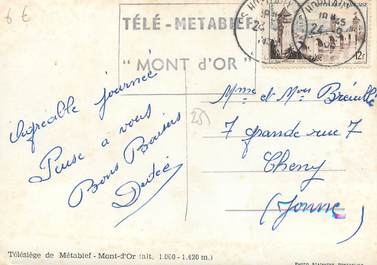 6 €
TÉLÉ-METABIEF
"MONT d'OR"
12F
Agréable journée
Pense à vous
Bons Baisers
25
Mme et Mr
7 grande rue 7
Cheny
(Yonne)
Télésiège de Métabief - Mont-d'Or (alt. 1.000 - 1.420 m.)